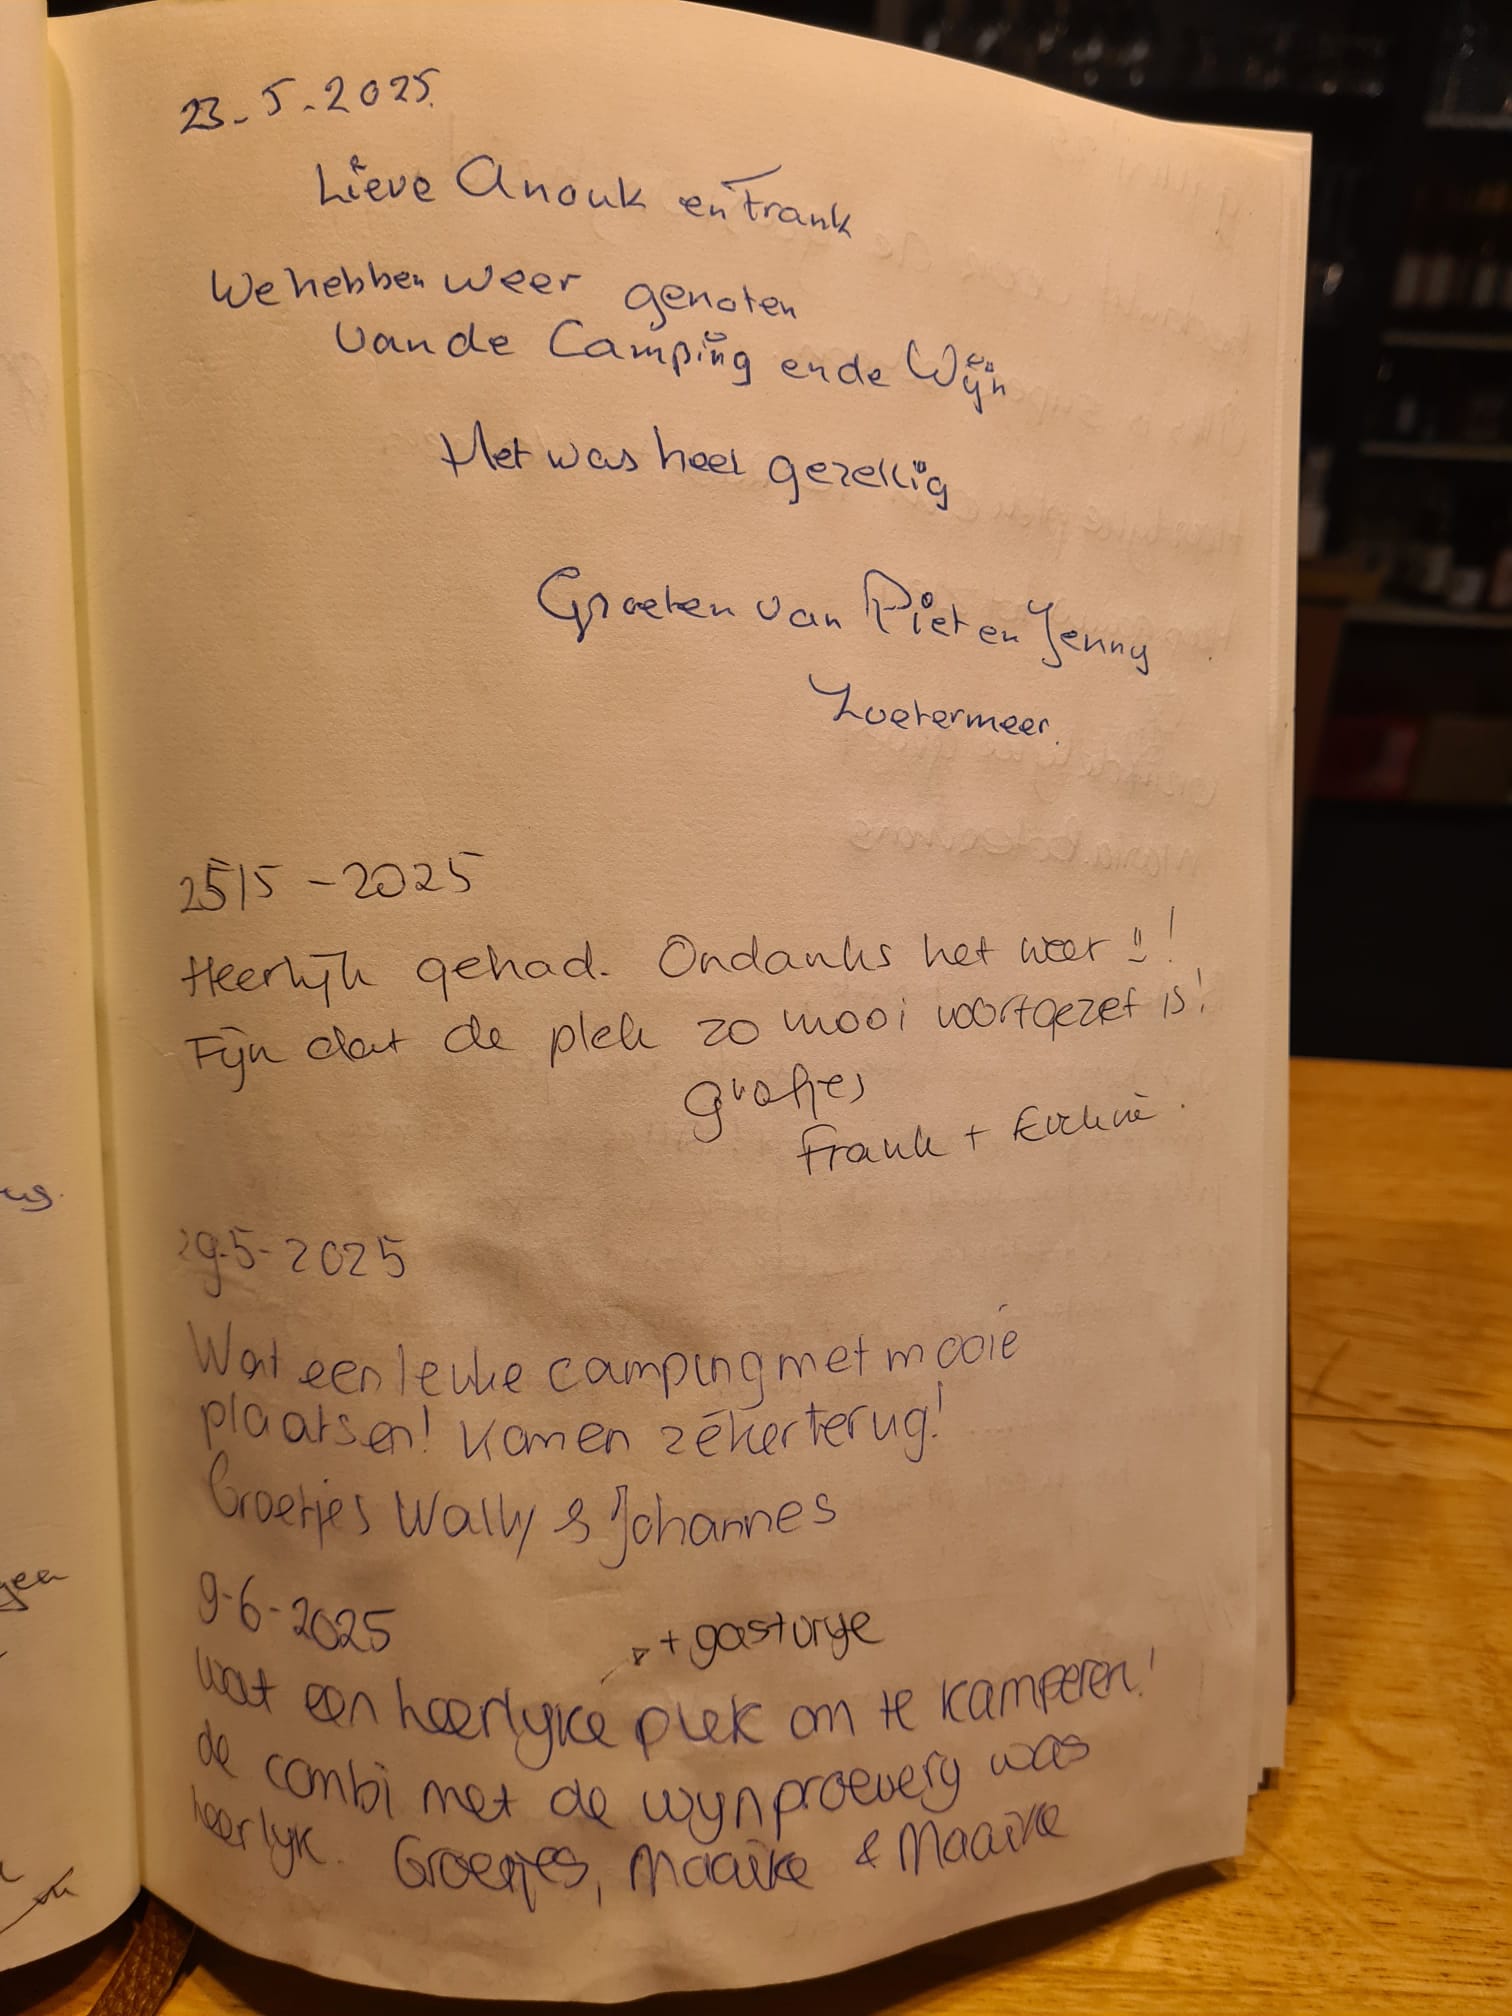 23-5-2025.
Lieve Anouk en Frank
We hebben weer genoten
van de Camping en de Wijn
Het was heel gezellig
Groeten van Piet en Jenny
Zoetermeer.
25/5-2025
Heerlijk gehad. Ondanks het weer !
Fijn dat de plek zo mooi voortgezet is!
groetjes
Frank + Eveline.
29-5-2025
Wat een leuke camping met mooie
plaatsen! Komen zéker terug!
Groetjes Wally & Johannes
9-6-2025
+ gastvrije
wat een heerlijke plek om te kamperen!
de combi met de wijnproeverij was
heerlijk. Groetjes, Maaike & Maaike